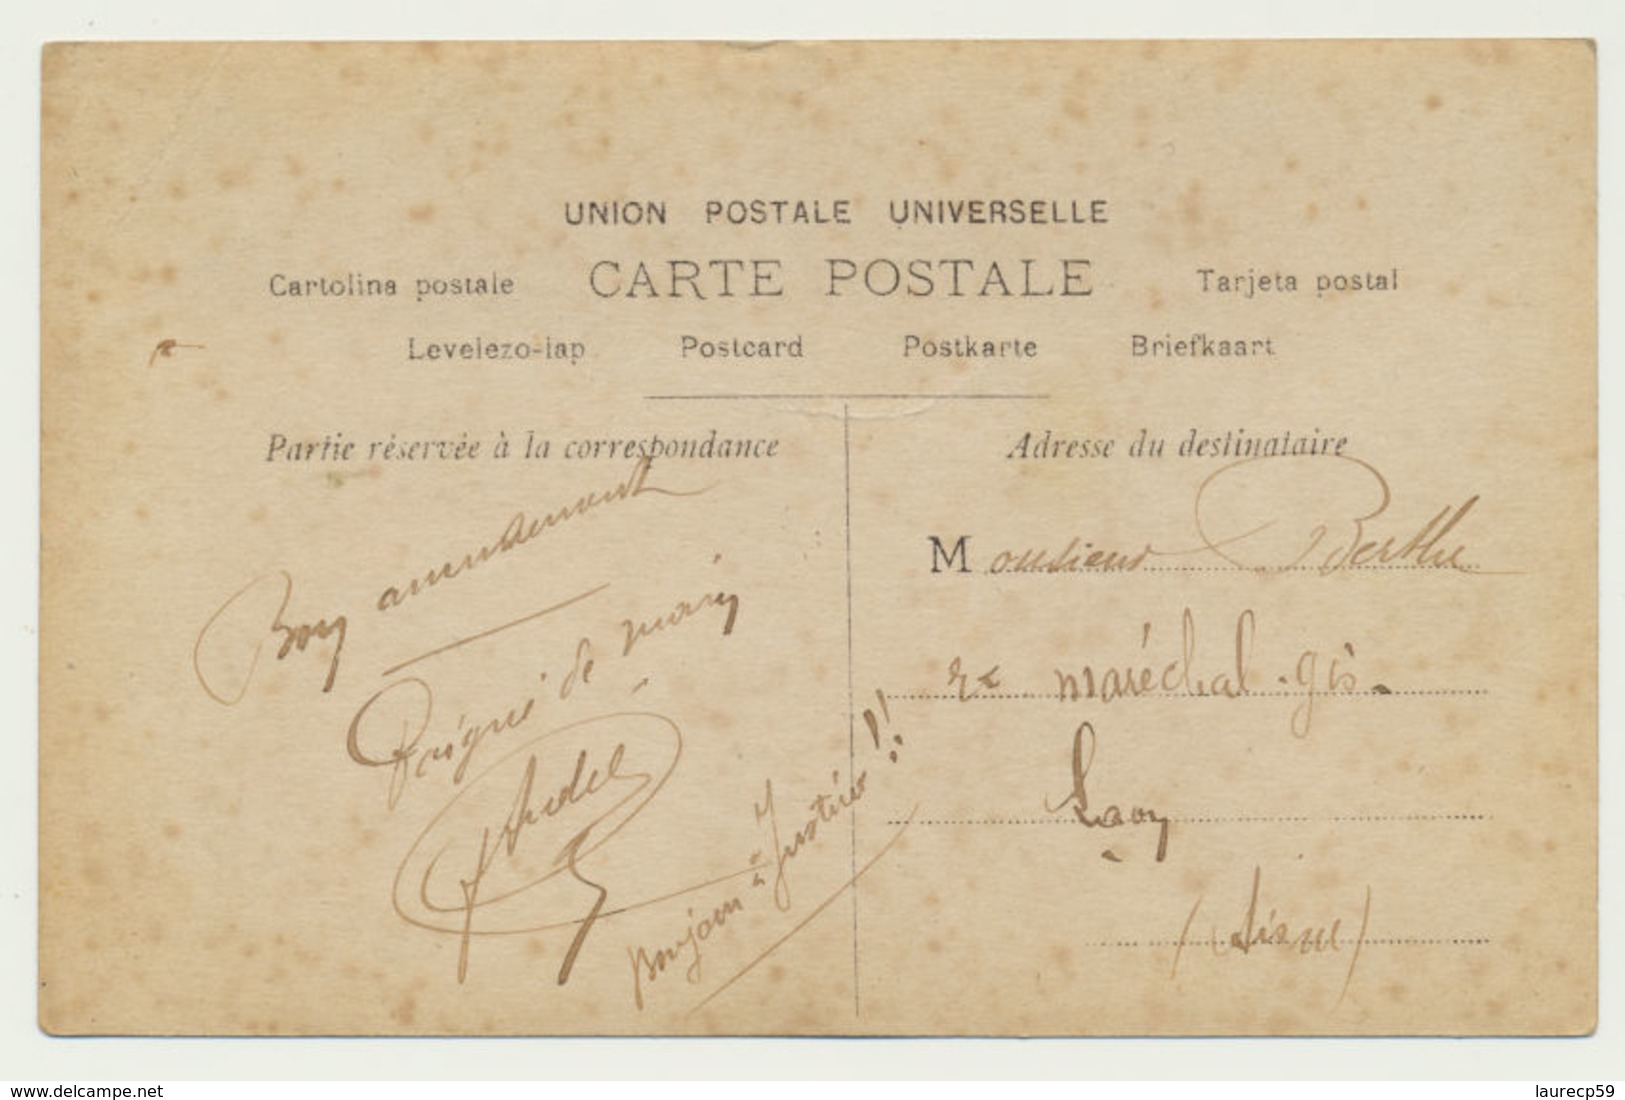 UNION POSTALE UNIVERSELLE
CARTE POSTALE
Cartolina postale
Tarjeta postal
Levelezo-lap Postcard Postkarte Briefkaart
Partie réservée à la correspondance
Bon amusement
Poigné de main
Bonjour à Justin !!
Adresse du destinataire
Monsieur Berthe
maréchal-gis.
Laon
(Aisne)
delcampe.net
laurecp59